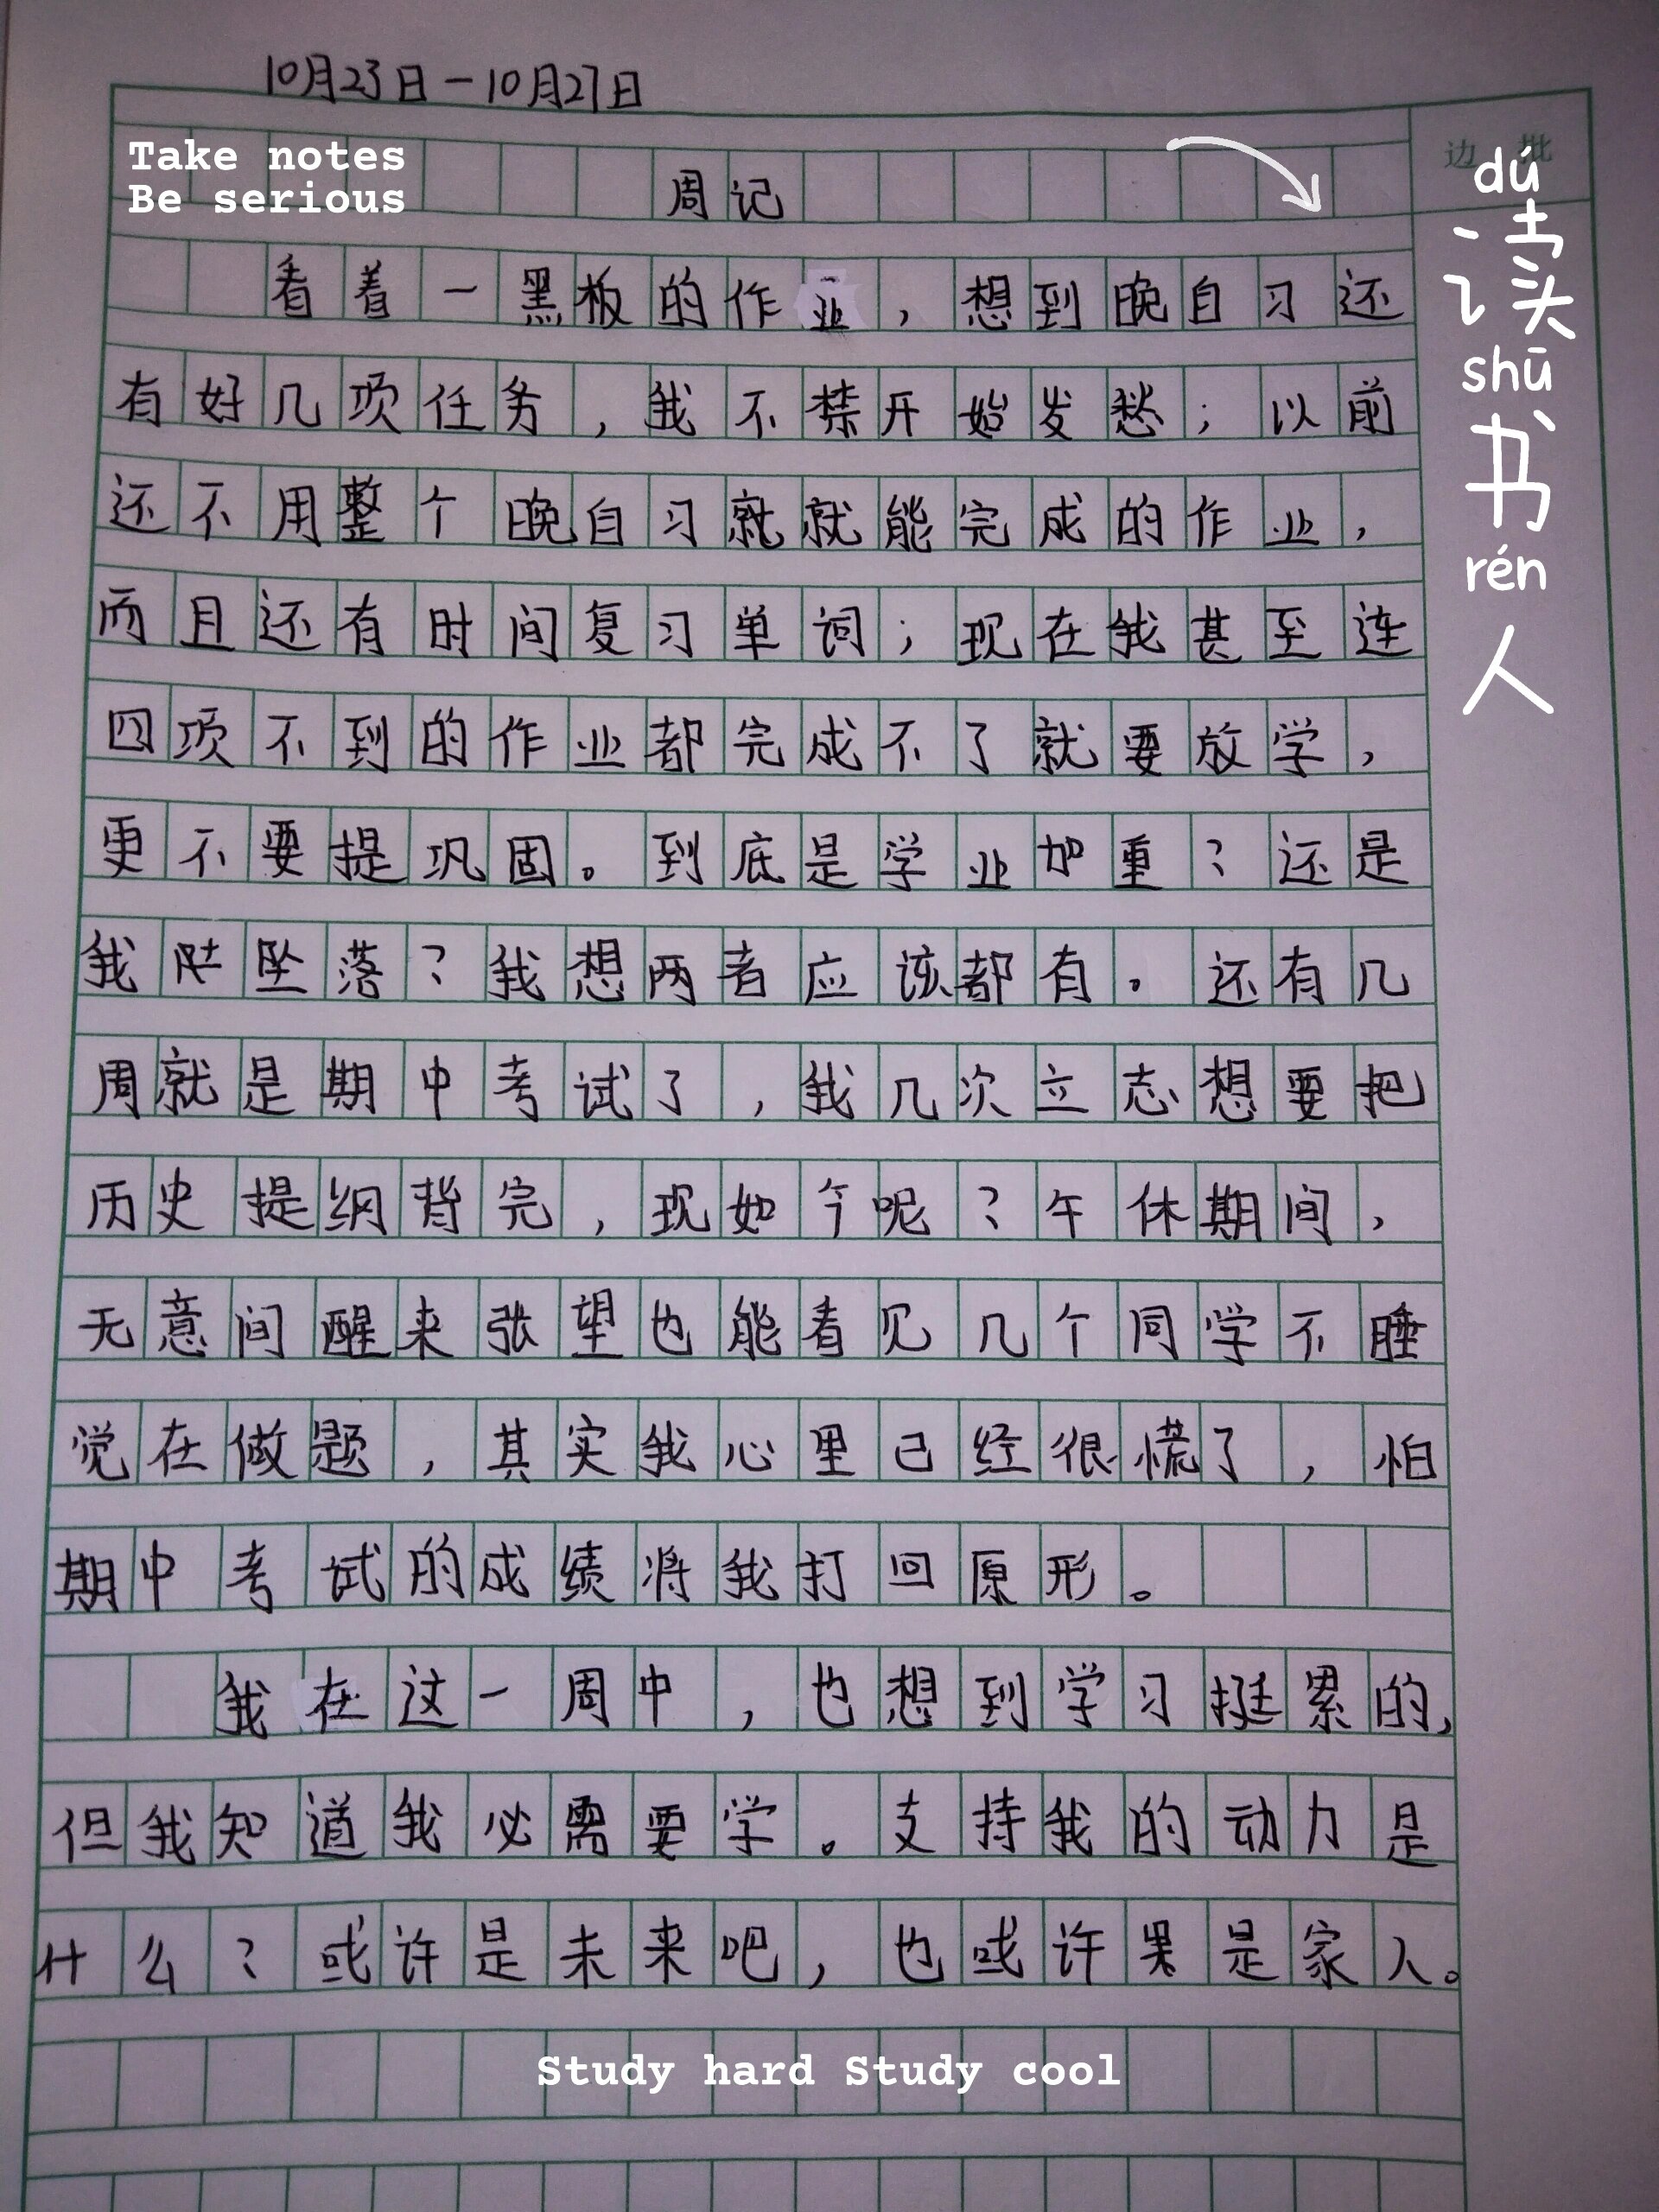 10月23日－10月27日
Take notes
Be serious
边批
周记
看着一黑板的作业，想到晚自习还
有好几项任务，我不禁开始发愁；以前
还不用整个晚自习就就能完成的作业，
而且还有时间复习单词；现在我甚至连
四项不到的作业都完成不了就要放学，
更不要提巩固。到底是学业加重？还是
我陡坠落？我想两者应该都有。还有几
周就是期中考试了，我几次立志想要把
历史提纲背完，现如今呢？午休期间，
无意间醒来张望也能看见几个同学不睡
觉在做题，其实我心里已经很慌了，怕
期中考试的成绩将我打回原形。
我在这一周中，也想到学习挺累的，
但我知道我必需要学。支持我的动力是
什么？或许是未来吧，也或许是家人。
dú
读
shū
书
rén
人
Study hard Study cool